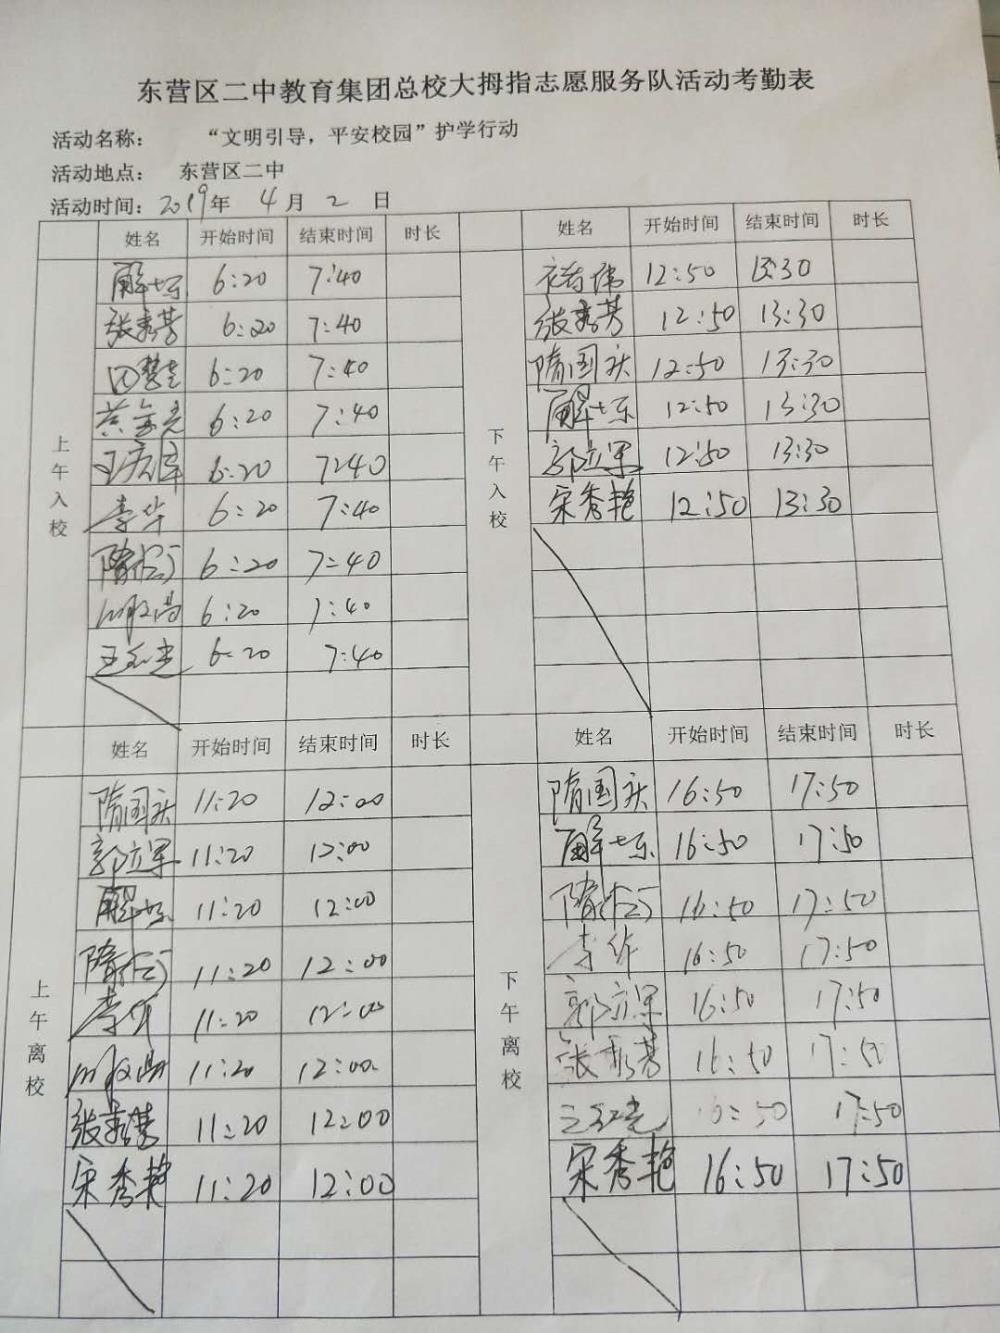 东营区二中教育集团总校大拇指志愿服务队活动考勤表
活动名称： “文明引导，平安校园”护学行动
活动地点： 东营区二中
活动时间：2019年 4月 2 日
姓名 开始时间 结束时间 时长 姓名 开始时间 结束时间 时长
上午入校
6:20 7:40
张秀芳 6:20 7:40
6:20 7:40
6:20 7:40
6:20 7:40
李华 6:20 7:40
6:20 7:40
6:20 7:40
6:20 7:40
下午入校
12:50 13:30
张秀芳 12:50 13:30
隋国庆 12:50 13:30
12:50 13:30
郭立军 12:50 13:30
宋秀艳 12:50 13:30
姓名 开始时间 结束时间 时长 姓名 开始时间 结束时间 时长
上午离校
隋国庆 11:20 12:00
郭立军 11:20 12:00
11:20 12:00
11:20 12:00
李华 11:20 12:00
11:20 12:00
张秀芳 11:20 12:00
宋秀艳 11:20 12:00
下午离校
隋国庆 16:50 17:50
16:50 17:50
16:50 17:50
李华 16:50 17:50
郭立军 16:50 17:50
张秀芳 16:50 17:50
16:50 17:50
宋秀艳 16:50 17:50